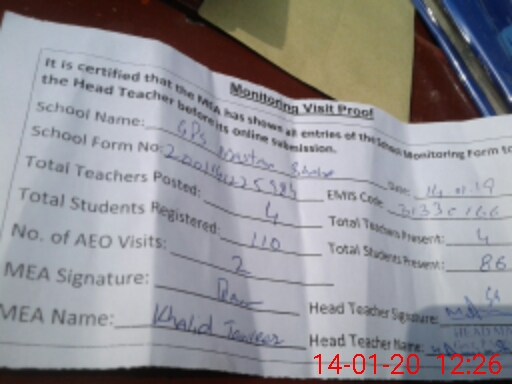 Monitoring Visit Proof
It is certified that the MEA has shown all entries of the School Monitoring Form to
the Head Teacher before its online submission.
School Name: GPS Date: 14.01.19
School Form No: EMIS Code
Total Teachers Posted: 4 Total Teachers Present: 4
Total Students Registered: 110 Total Students Present: 86
No. of AEO Visits: 2
MEA Signature: Head Teacher Signature:
MEA Name: Khalid Head Teacher Name:
14-01-20 12:26